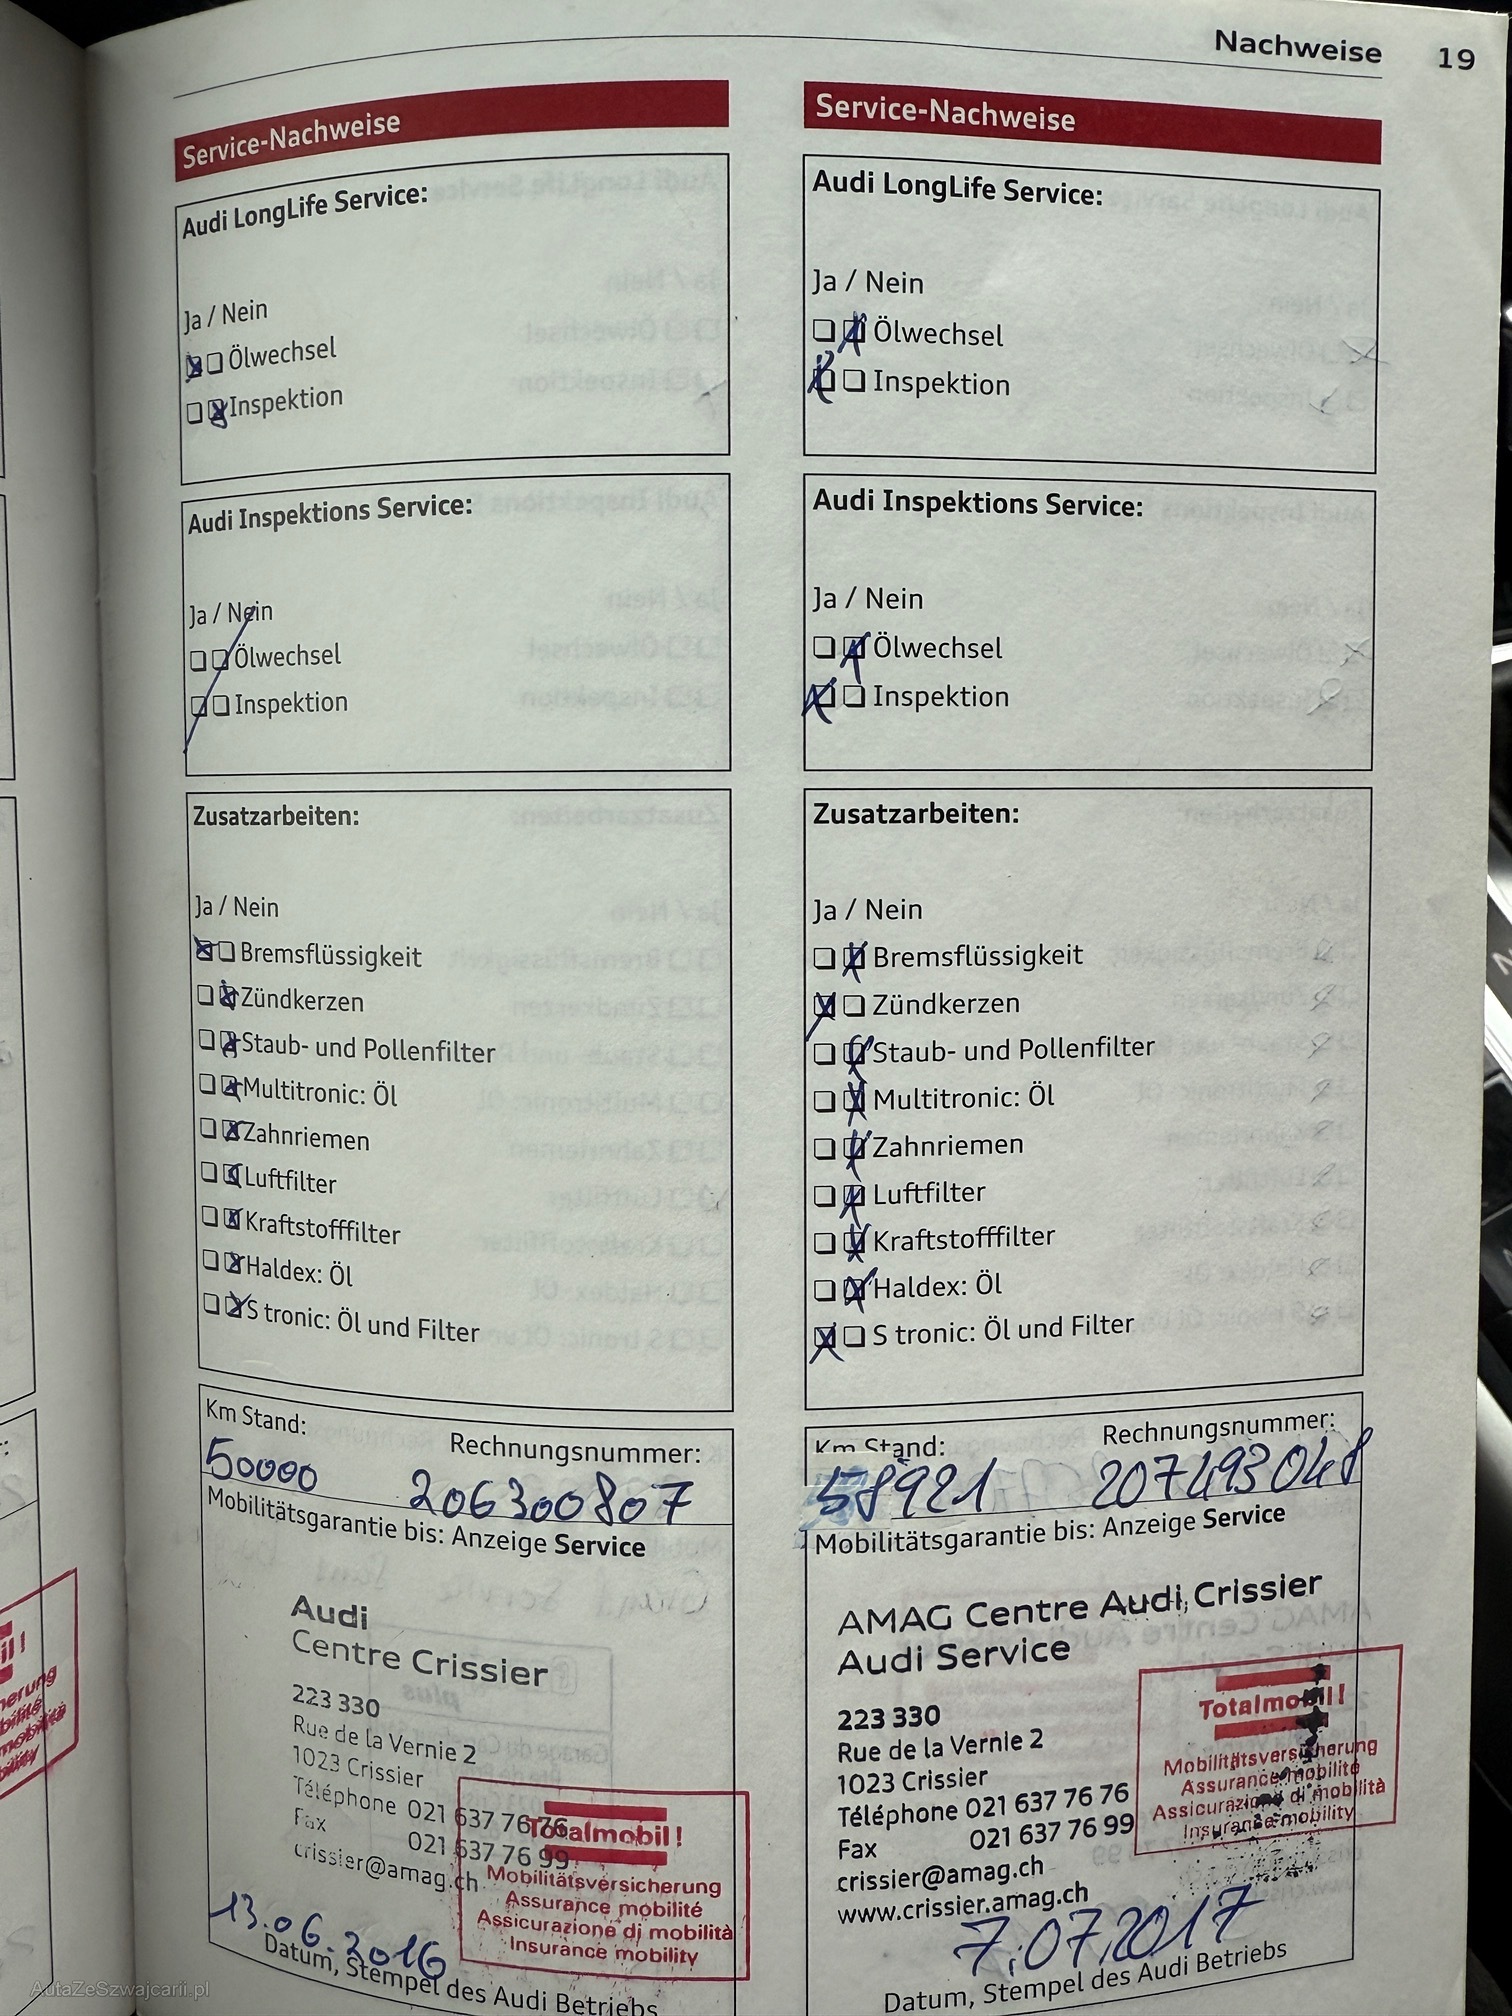 Nachweise 19
Service-Nachweise
Audi LongLife Service:
Ja / Nein
Ölwechsel
Inspektion
Audi Inspektions Service:
Ja / Nein
Ölwechsel
Inspektion
Zusatzarbeiten:
Ja / Nein
Bremsflüssigkeit
Zündkerzen
Staub- und Pollenfilter
Multitronic: Öl
Zahnriemen
Luftfilter
Kraftstofffilter
Haldex: Öl
S tronic: Öl und Filter
Km Stand: Rechnungsnummer:
50000 206300807
Mobilitätsgarantie bis: Anzeige Service
Audi
Centre Crissier
223 330
Rue de la Vernie 2
1023 Crissier
Téléphone 021 637 76 76
Fax 021 637 76 99
crissier@amag.ch
Totalmobil!
Mobilitätsversicherung
Assurance mobilité
Assicurazione di mobilità
Insurance mobility
13.06.2016
Datum, Stempel des Audi Betriebs
Service-Nachweise
Audi LongLife Service:
Ja / Nein
Ölwechsel
Inspektion
Audi Inspektions Service:
Ja / Nein
Ölwechsel
Inspektion
Zusatzarbeiten:
Ja / Nein
Bremsflüssigkeit
Zündkerzen
Staub- und Pollenfilter
Multitronic: Öl
Zahnriemen
Luftfilter
Kraftstofffilter
Haldex: Öl
S tronic: Öl und Filter
Km Stand: Rechnungsnummer:
58921 207493048
Mobilitätsgarantie bis: Anzeige Service
AMAG Centre Audi Crissier
Audi Service
223 330
Rue de la Vernie 2
1023 Crissier
Téléphone 021 637 76 76
Fax 021 637 76 99
crissier@amag.ch
www.crissier.amag.ch
Totalmobil!
Mobilitätsversicherung
Assurance mobilité
Assicurazione di mobilità
Insurance mobility
7.07.2017
Datum, Stempel des Audi Betriebs
AutaZeSzwajcarii.pl